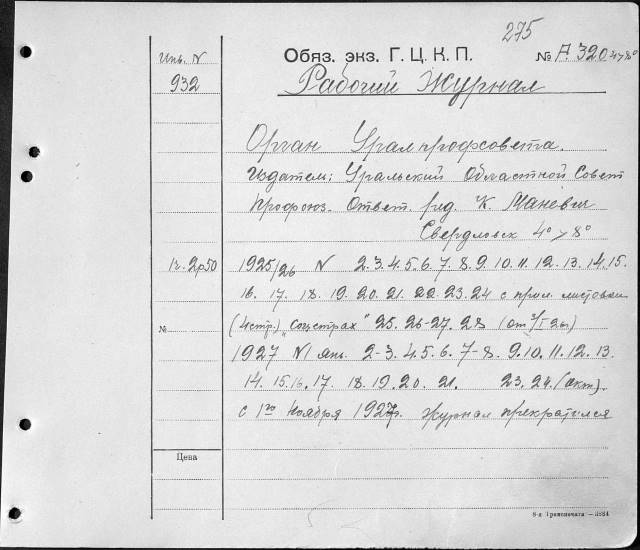 275
Инв. N
932
Обяз. экз. Г. Ц. К. П. № А. 320 4>8°
Рабочий Журнал
Орган Уралпрофсовета.
Издатель: Уральский Областной Совет
Профсоюз. Ответ. ред. К. Маневич
Свердловск 4°>8°
1925/26 N 2-3.4.5.6.7.8.9.10.11.12.13.14.15.
16.17.18.19.20.21.22.23.24 с прил. листовки
№ (4 стр.) „Соцстрах" 25.26-27.28 (от
1927 N1 янв. 2-3.4.5.6.7-8.9.10.11.12.13.
14.15.16.17.18.19.20.21. 23.24. (окт).
с 1го Ноября 1927г. журнал прекратился
Цена